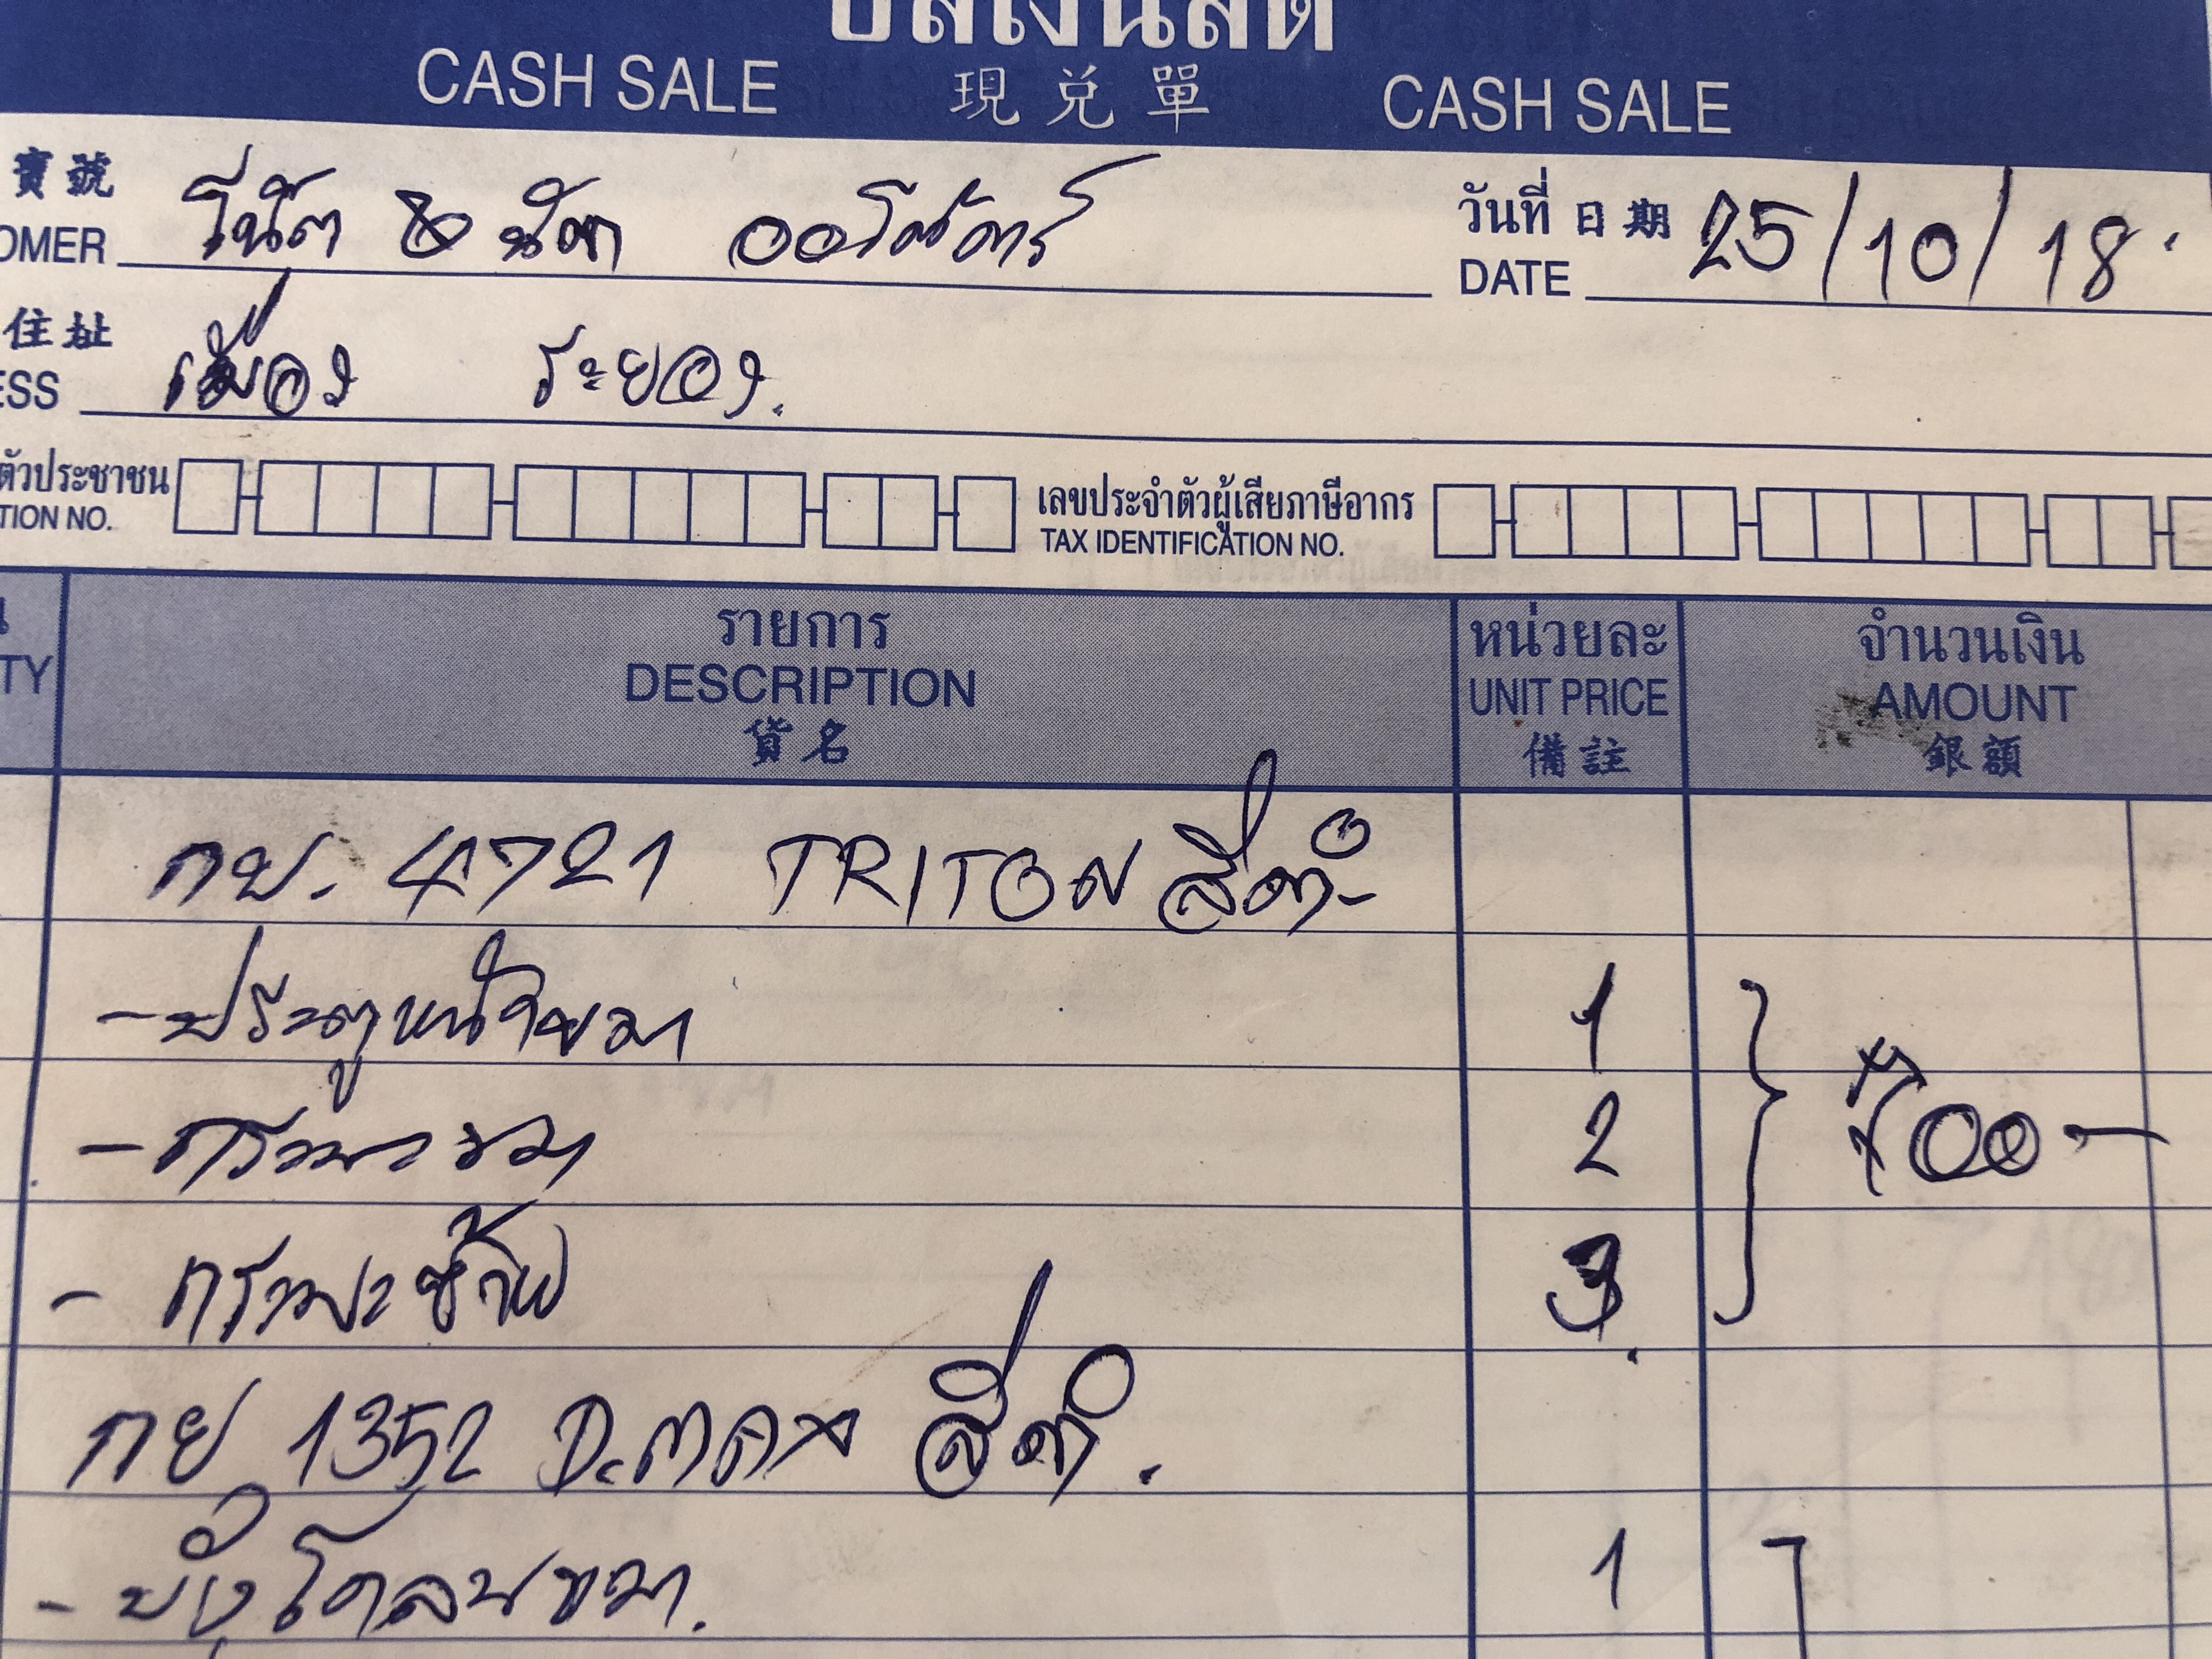 บิลเงินสด
CASH SALE 現兌單 CASH SALE
寶號 วันที่ 日期 25/10/18
OMER โน๊ต & นัท ออโต้คาร์ DATE
住址
ESS เมือง ระยอง.
ตัวประชาชน เลขประจำตัวผู้เสียภาษีอากร
TION NO. TAX IDENTIFICATION NO.
รายการ หน่วยละ จำนวนเงิน
TY DESCRIPTION UNIT PRICE AMOUNT
貨名 備註 銀額
กย. 4721 TRITON สีดำ
- ประตูหน้าขวา 1
- กระบะขวา 2 00 -
- กระบะซ้าย 3
กย 1352 D.max สีดำ.
- บังโคลนขวา. 1